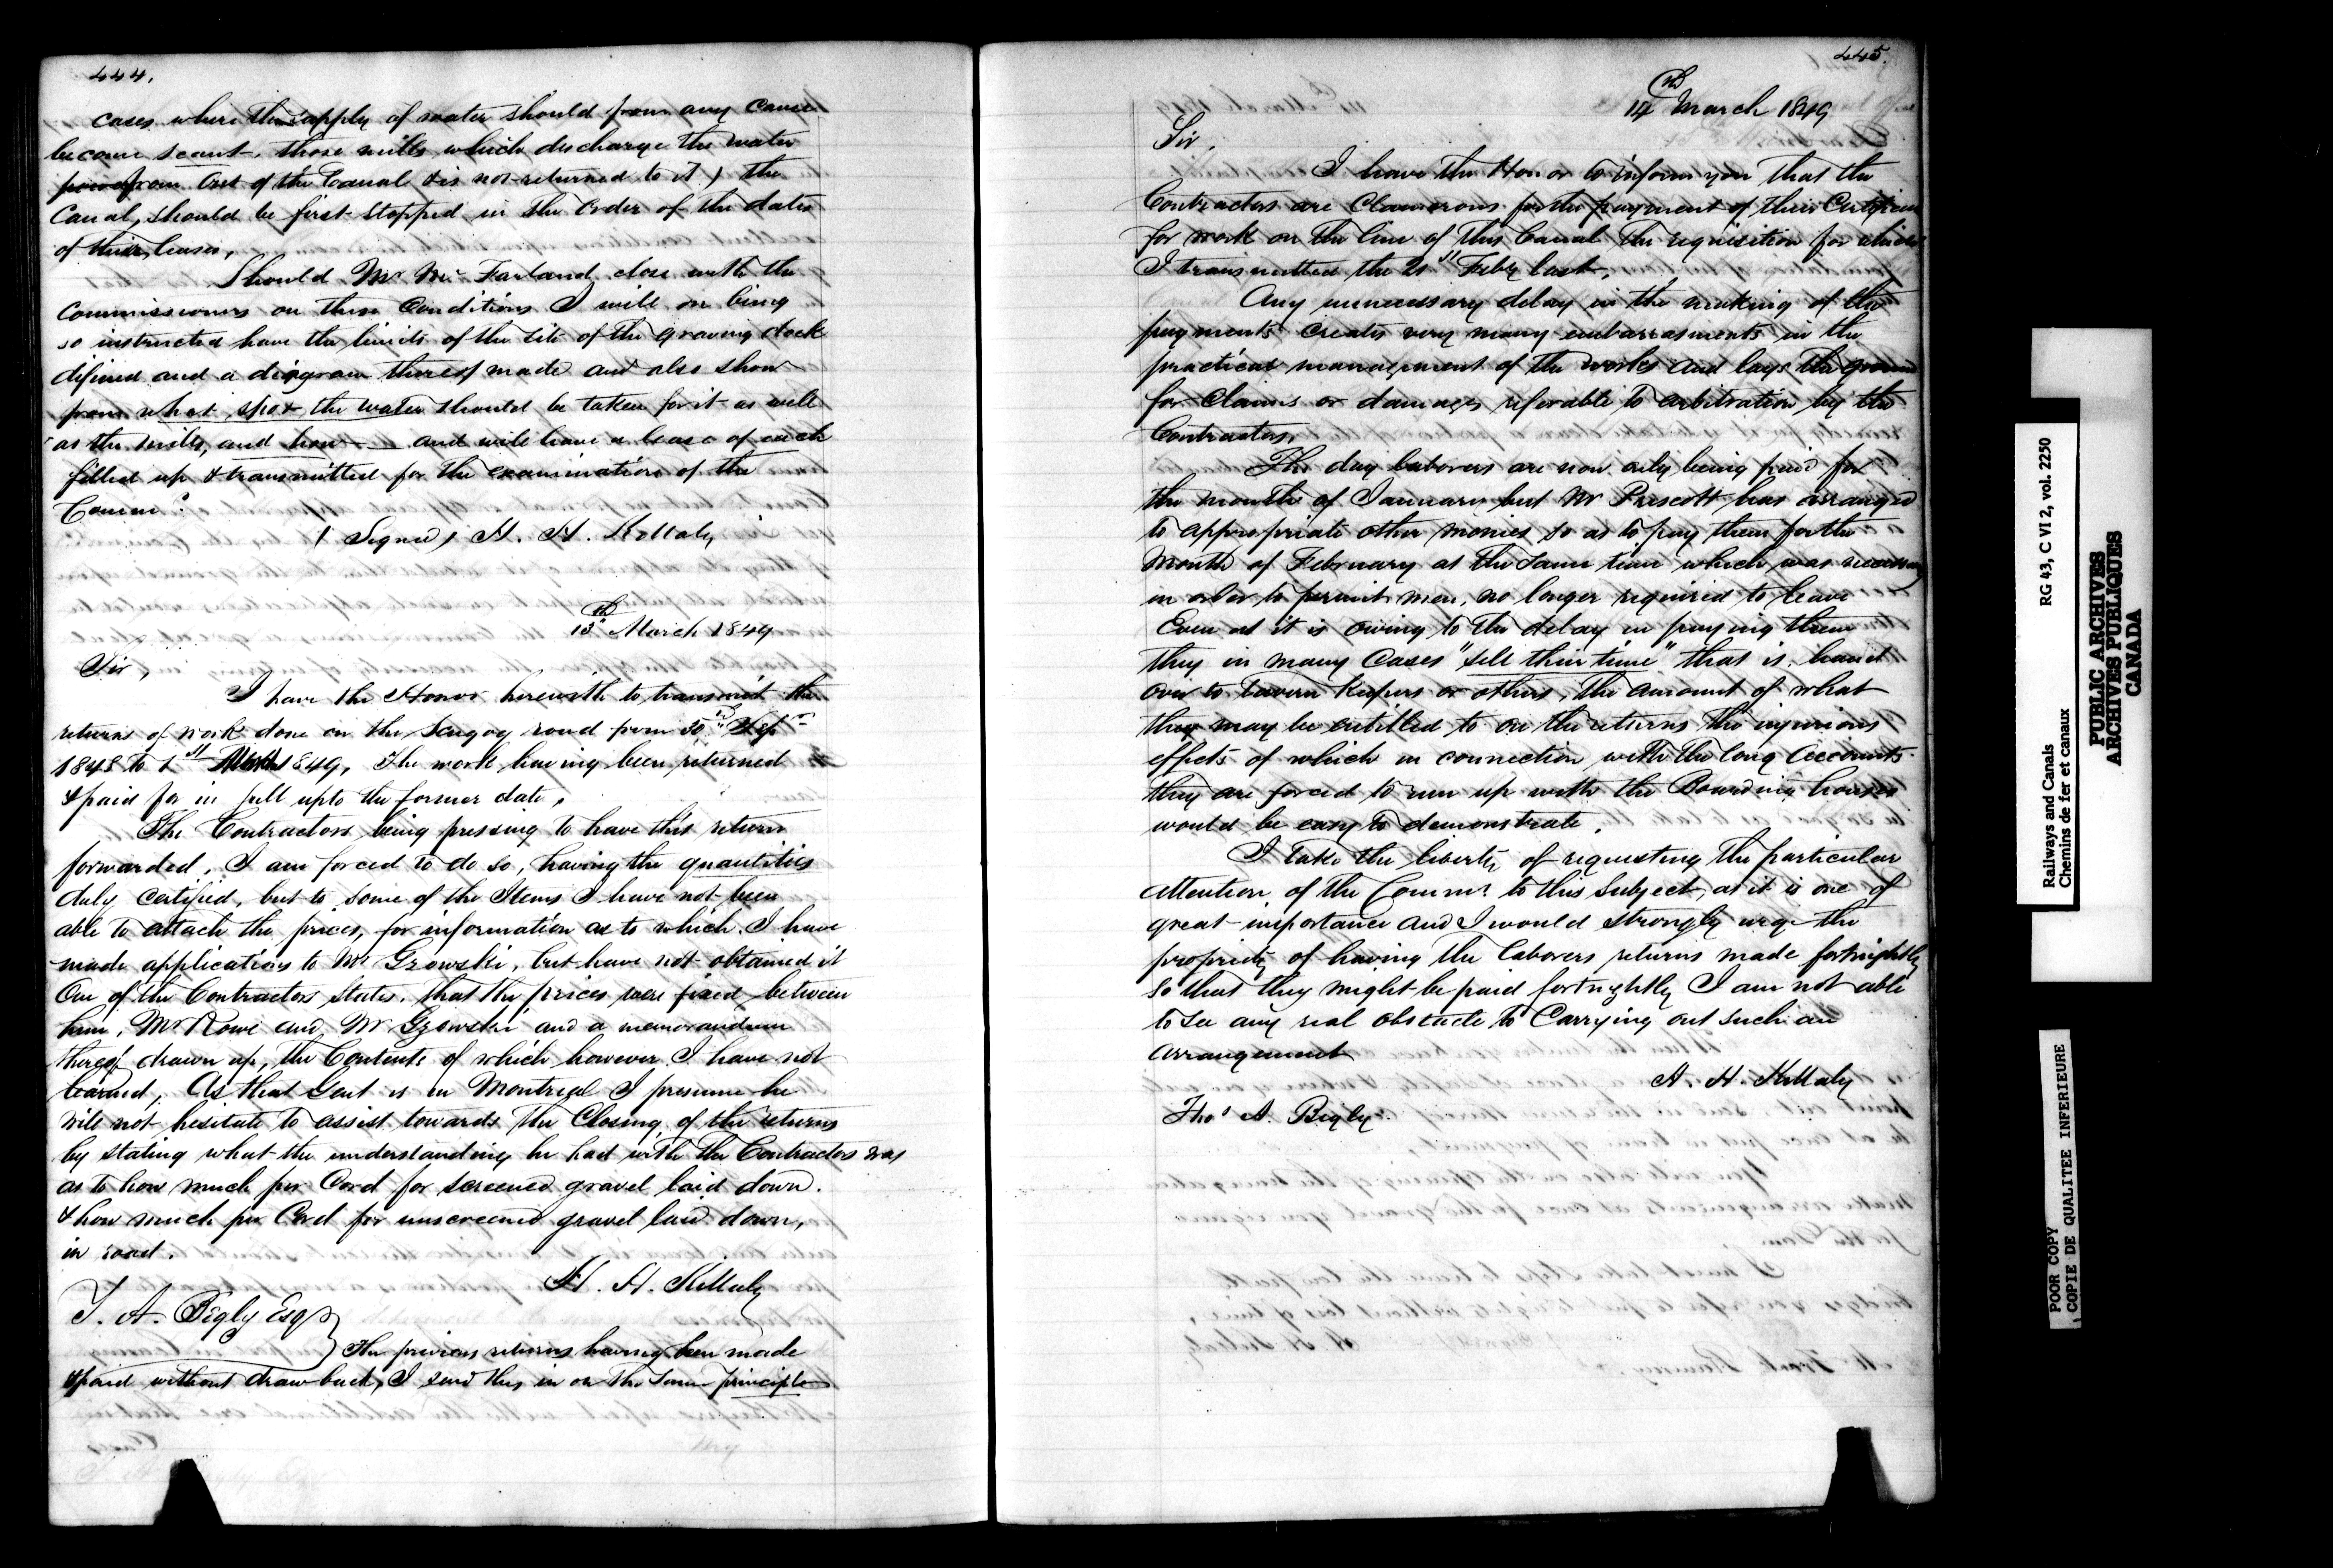 444.
cases where the supply of water should from any cause
become scant, those mills which discharge the water
from out of the Canal & is not returned to it) the
Canal, should be first stopped in the order of the dates
of their leases,
Should Mr McFarland close with the
Commissioners on these Conditions I will on being
so instructed have the limits of the site of the graving dock
difined and a diagram thereof made and also show
from what spot the water should be taken for it as well
as the mills, and how — and will have a lease of each
filled up & transmitted for the examination of the
Commrs
(Signed) H. H. Killaly
13th March 1849
Sir,
I have the Honor herewith to transmit the
returns of work done on the Scugog road from 30th Sepr
1848 to 1st March 1849, The work having been returned
& paid for in full upto the former date,
The Contractors being pressing to have this return
forwarded, I am forced to do so, having the quantities
duly certified, but to some of the Items I have not been
able to attach the prices, for information as to which I have
made application to Mr Gzowski, but have not obtained it
One of the Contractors states, that the prices were fixed between
him, Mr Rowe and Mr Gzowski and a memorandum
thereof drawn up, the Contents of which however I have not
learned, As that Gent is in Montreal I presume he
will not hesitate to assist towards the Closing of the returns
by stating what the understanding he had with the Contractors was
as to how much per Cord for screened gravel laid down.
& how much per Cord for unscreened gravel laid down,
in road.
H. H. Killaly
T. A. Begly Esqr
The previous returns having been made
& paid without drawback, I send this in on the same principle
445.
14th March 1849
Sir,
I have the Honor to inform you that the
Contractors are Clamorous for the payment of their Certificate
for work on the line of this Canal the requisition for which
I transmitted the 21st Feby last,
Any unnecessary delay in the making of the
payments creates very many embarrasments in the
practical management of the works and lays the ground
for Claims or damages referable to arbitration by the
Contractors,
The day laborers are now only being paid for
the month of January but Mr Prescott has arranged
to appropriate other monies so as to pay them for the
Month of February at the same time which was necessary
in order to permit men, no longer required to leave
Even as it is owing to the delay in paying them
they in many Cases "sell their time" that is hand
over to tavern keepers or others, the amount of what
they may be entitled to on the returns the injurious
effects of which in connection with the long accounts
they are forced to run up with the Boarding houses
would be easy to demonstrate,
I take the liberty of requesting the particular
attention of the Commrs to this Subject, as it is one of
great importance and I would strongly urge the
propriety of having the laborers returns made fortnightly
so that they might be paid fortnightly I am not able
to see any real obstacle to Carrying out such an
arrangement
H. H. Killaly
Thos A. Begly
RG 43, C VI 2, vol. 2250
Railways and Canals
Chemins de fer et canaux
PUBLIC ARCHIVES
ARCHIVES PUBLIQUES
CANADA
POOR COPY
COPIE DE QUALITEE INFERIEURE